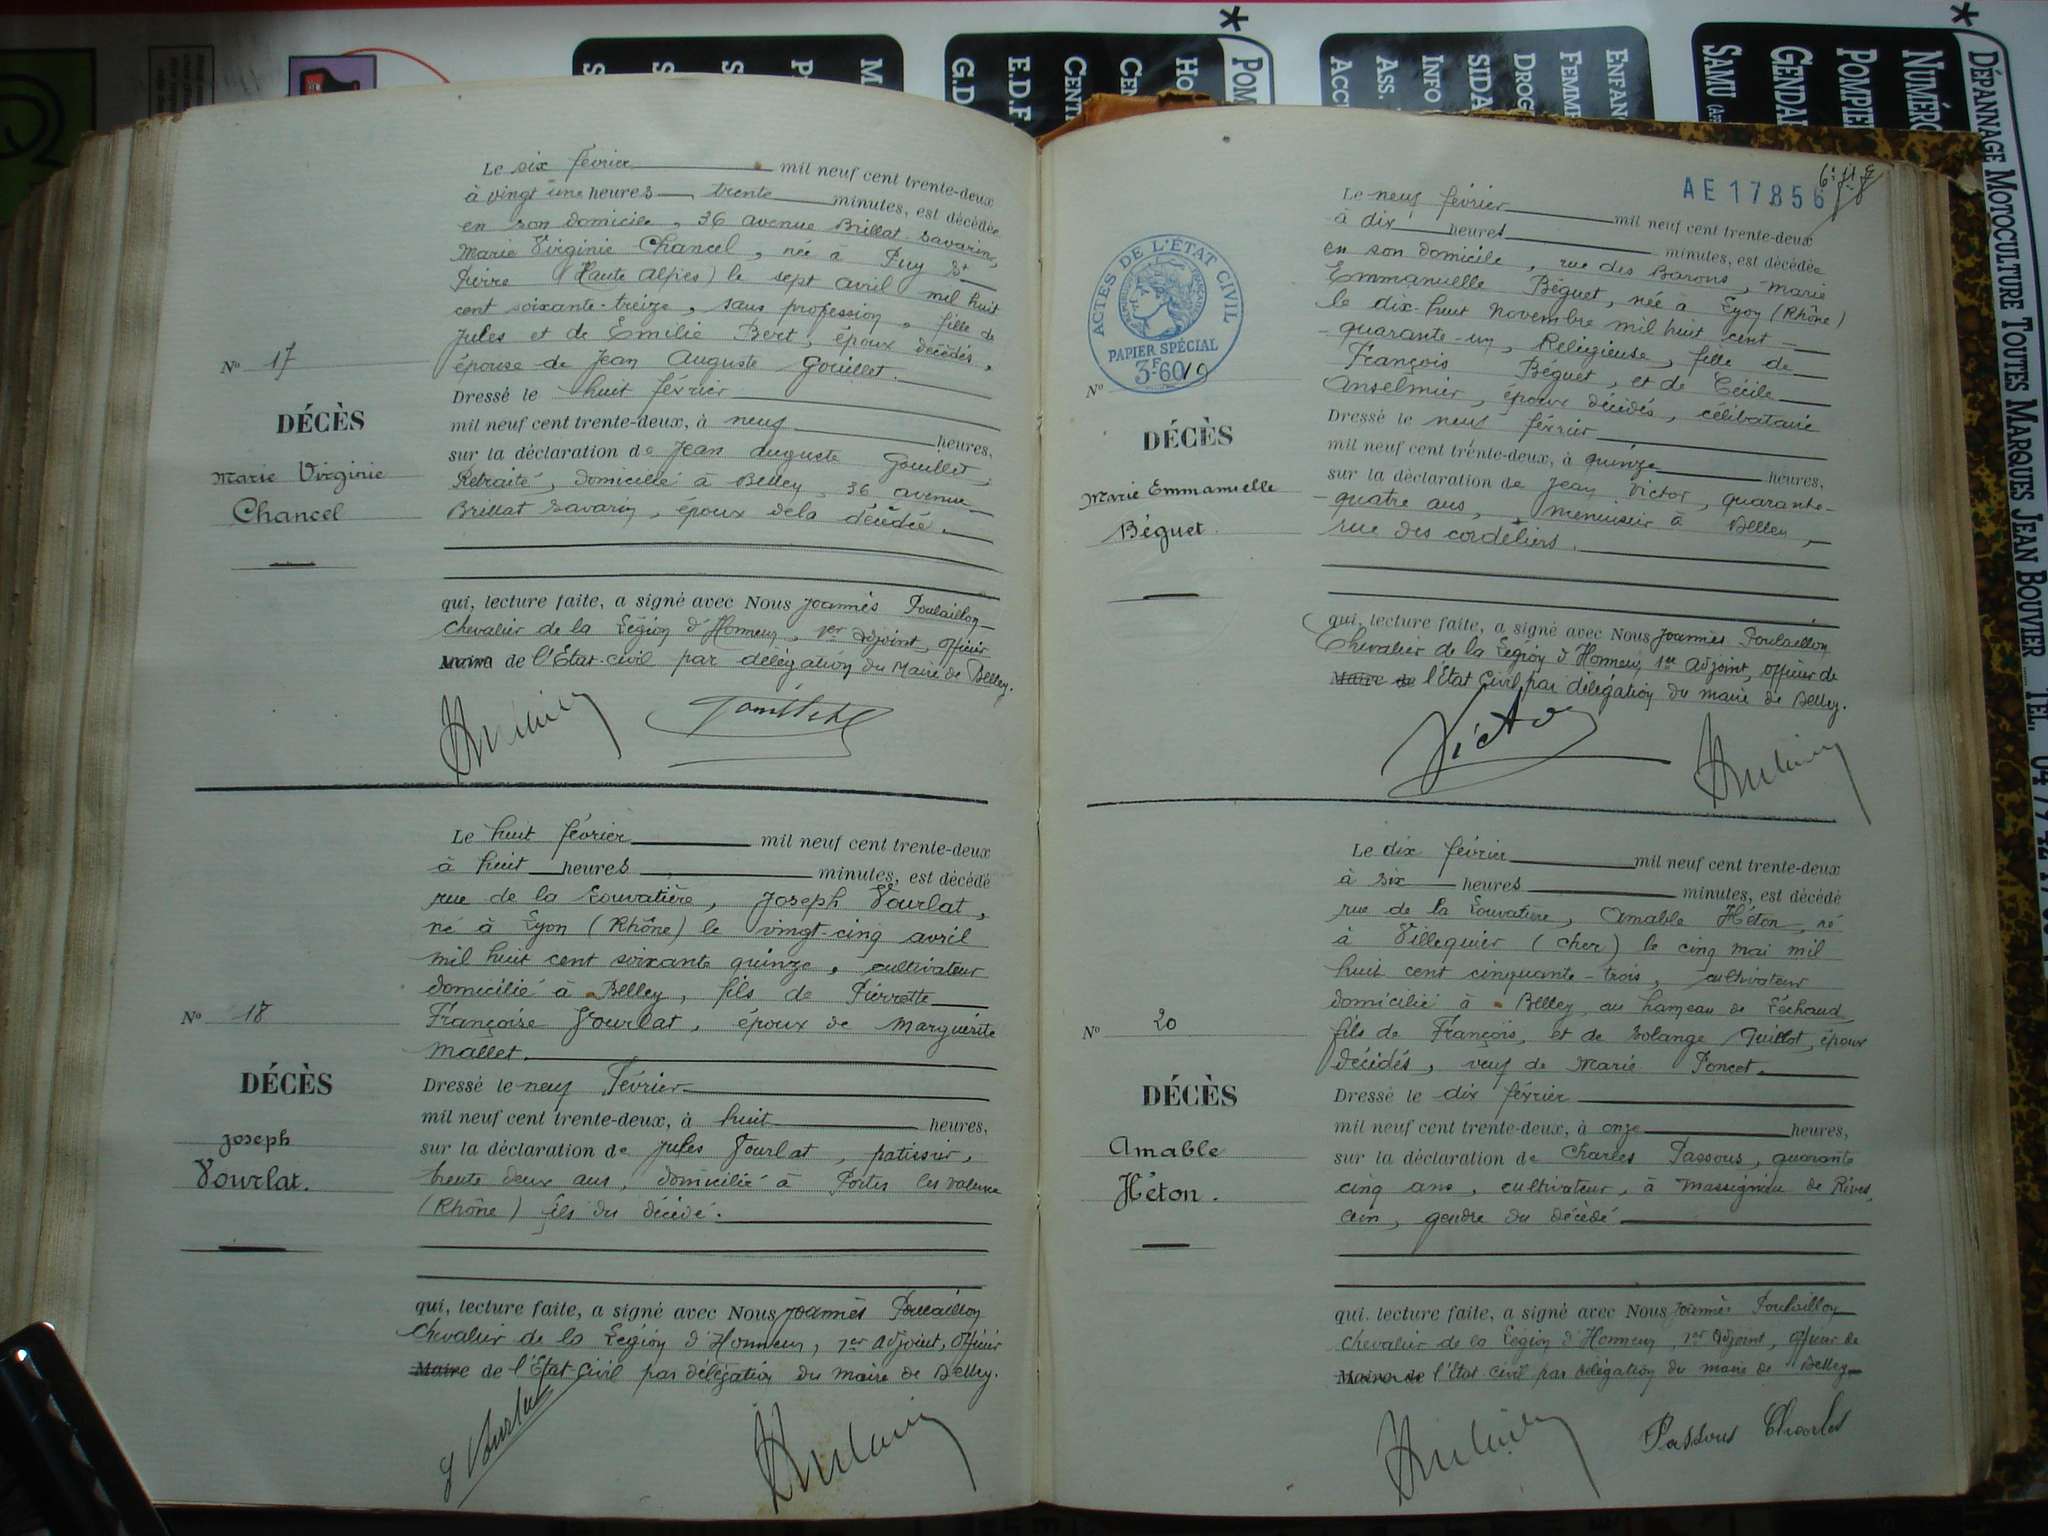 Le six février mil neuf cent trente-deux
à vingt une heures trente minutes, est décédée
en son domicile, 36 avenue Brillat-Savarin,
Marie Virginie Chancel, née à Puy St
Pierre (Haute Alpes) le sept avril mil huit
cent soixante-treize, sans profession, fille de
Jules et de Emilie Bert, époux décédés,
épouse de Jean Auguste Gouillet.
Dressé le huit février
mil neuf cent trente-deux, à neuf heures,
sur la déclaration de Jean Auguste Gouillet,
Retraité, domicilié à Belley, 36 avenue
Brillat Savarin, époux dela décédée.
qui, lecture faite, a signé avec Nous Joannès Poulaillon
Chevalier de la Légion d'Honneur, 1er adjoint, officier
Maire de l'Etat-civil par délégation du Maire de Belley.
No 17
DÉCÈS
Marie Virginie
Chancel
Le huit février mil neuf cent trente-deux
à huit heures minutes, est décédé
rue de la Louvatière, Joseph Vourlat,
né à Lyon (Rhône) le vingt-cinq avril
mil huit cent soixante quinze, cultivateur
domicilié à Belley, fils de Pierrette
Françoise Vourlat, époux de Marguerite
Mallet.
Dressé le neuf Février
mil neuf cent trente-deux, à huit heures,
sur la déclaration de Jules Vourlat, patissier,
trente deux ans, domicilié à Portes les Valence
(Rhône) fils du décédé.
qui, lecture faite, a signé avec Nous Joannès Poulaillon
Chevalier de la Légion d'Honneur, 1er adjoint, officier
Maire de l'Etat-Civil par délégation du maire de Belley.
J Vourlat
No 18
DÉCÈS
Joseph
Vourlat.
AE 17856
Le neuf février mil neuf cent trente-deux
à dix heures minutes, est décédée
en son domicile, rue des Barons, Marie
Emmanuelle Béguet, née à Lyon (Rhône)
le dix-huit Novembre mil huit cent
quarante-un, Religieuse, fille de
François Béguet, et de Cécile
Anselmier, époux décédés, célibataire
Dressé le neuf février
mil neuf cent trente-deux, à quinze heures,
sur la déclaration de Jean Victor, quarante-
quatre ans, menuisier à Belley,
rue des cordeliers.
qui, lecture faite, a signé avec Nous Joannès Poulaillon
Chevalier de la Légion d'Honneur, 1er adjoint, officier de
Maire de l'Etat Civil par délégation du maire de Belley.
Victor
ACTES DE L'ÉTAT CIVIL
PAPIER SPÉCIAL
3F60
No 19
DÉCÈS
Marie Emmanuelle
Béguet.
Le dix février mil neuf cent trente-deux
à six heures minutes, est décédé
rue de la Louvatière, Amable Héton, né
à Villequier (Cher) le cinq mai mil
huit cent cinquante-trois, cultivateur
domicilié à Belley au hameau de
fils de François, et de Solange Guillot, époux
décédés, veuf de Marie Poncet.
Dressé le dix février
mil neuf cent trente-deux, à onze heures,
sur la déclaration de Charles Passous, quarante
cinq ans, cultivateur, à Massignieu de Rives,
ain, gendre du décédé
qui, lecture faite, a signé avec Nous Joannès Poulaillon
Chevalier de la Légion d'Honneur, 1er adjoint, officier de
Maire de l'Etat Civil par délégation du maire de Belley
Passous Charles
No 20
DÉCÈS
Amable
Héton.
DÉPANNAGE MOTOCULTURE TOUTES MARQUES JEAN BOUVIER TEL.
NUMÉRO
POMPIE
GENDA
SAMU
ENFAN
FEMME
DROG
SIDA
INFO
ASS.
ACC
POM
HO
CE
CENT
E.D.F.
G.D.